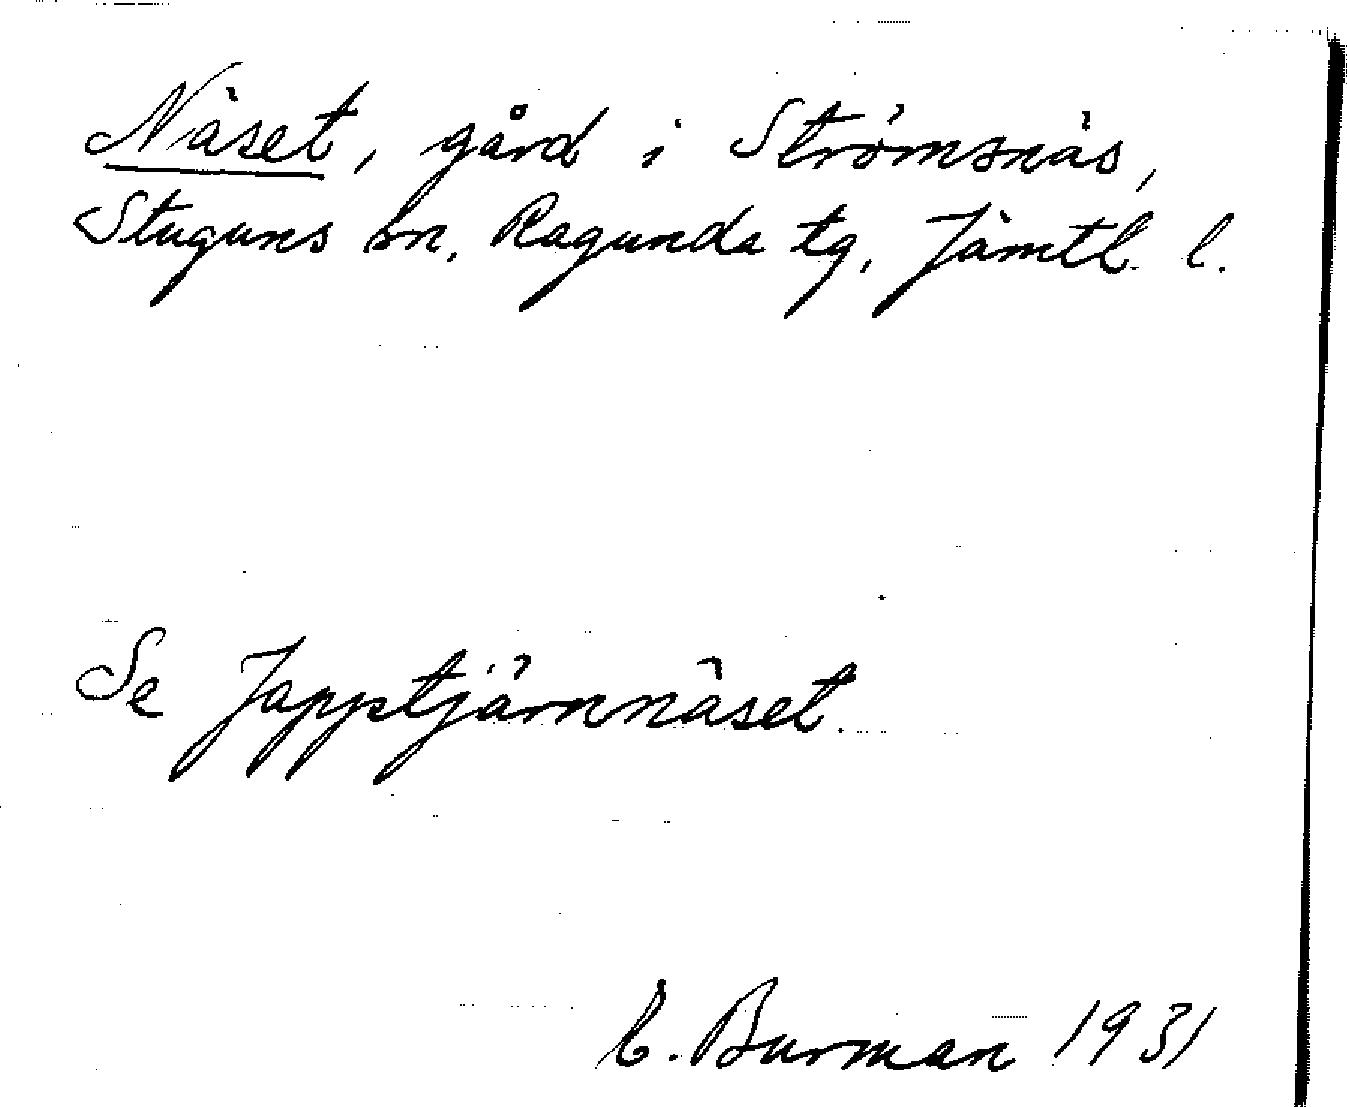 Näset, gård i Strömsnäs,
Stuguns sn, Ragunda tg, Jämtl. l.
Se Jappstjärnnäset.
C. Burman 1931